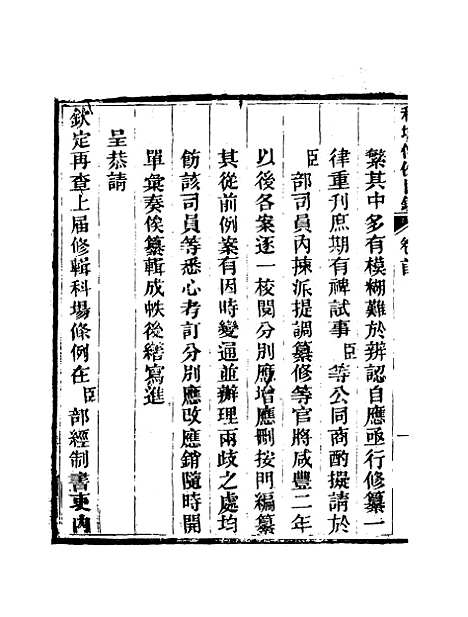 卷首
繁其中多有模糊難於辨認自應亟行修纂一
律重刋庶期有裨試事臣等公同商酌擬請於
臣部司員內揀派提調纂修等官將咸豐二年
以後各案逐一校閱分別應增應刪按門編纂
其從前例案有因時變通並辦理兩歧之處均
飭該司員等悉心考訂分別應改應銷隨時開
單彙奏俟纂輯成帙後繕寫進
呈恭請
欽定再查上屆修輯科場條例在臣部經制書吏內